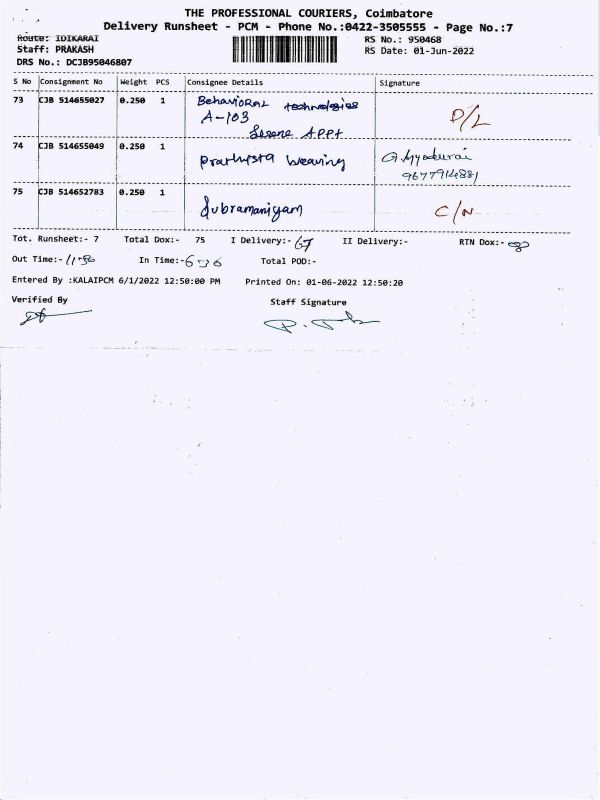 THE PROFESSIONAL COURIERS, Coimbatore
Delivery Runsheet - PCM - Phone No.:0422-3505555 - Page No.:7
Route: IDIKARAI
RS No.: 950468
Staff: PRAKASH
RS Date: 01-Jun-2022
DRS No.: DCJB95046807
S No Consignment No Weight PCS Consignee Details Signature
73 CJB 514655027 0.250 1 Behavioral technologies
A-103 D/L
Serene APPt
74 CJB 514655049 0.250 1 Prathista Weaving G. Ayyadurai
9677914881
75 CJB 514652783 0.250 1 Subramaniyam C/N
Tot. Runsheet:- 7 Total Dox:- 75 I Delivery:- 67 II Delivery:- RTN Dox:-
Out Time:- 11-50 In Time:- Total POD:-
Entered By :KALAIPCM 6/1/2022 12:50:00 PM Printed On: 01-06-2022 12:50:20
Verified By Staff Signature